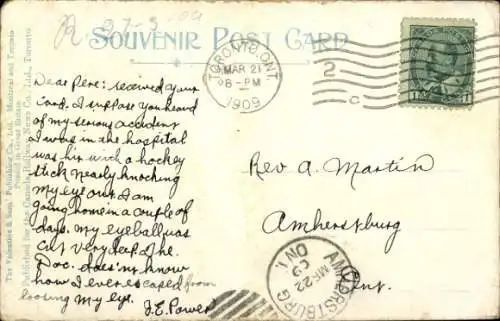 R 27-3-09
SOUVENIR POST CARD
TORONTO, ONT.
MAR 21
8-PM
1909
2
C
Dear Pere: received your
Card. I suppose you heard
of my serious accident
I was in the hospital
was hit with a hockey
stick nearly knocking
my eye out. I am
going home in a couple of
days. My eyeball was
cut very deep. The
Doc. does'nt know
how I ever escaped from
loosing my eye.
J.E. Power
Rev A. Martin
Amherstburg
Ont.
AMHERSTBURG ONT.
MR 22
09
The Valentine & Sons' Publishing Co., Ltd., Montreal and Toronto
Printed in Great Britain
Published for the Canada Railway News Co., Ltd., Toronto